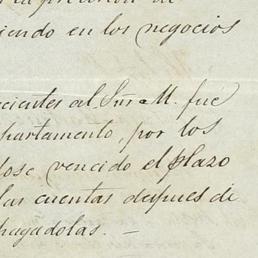 la precision de
iendo en los negocios
ecientes al Sñr M. fue
epartamento, por los
dose vencido el plazo
las cuentas despues de
pagadolas. —